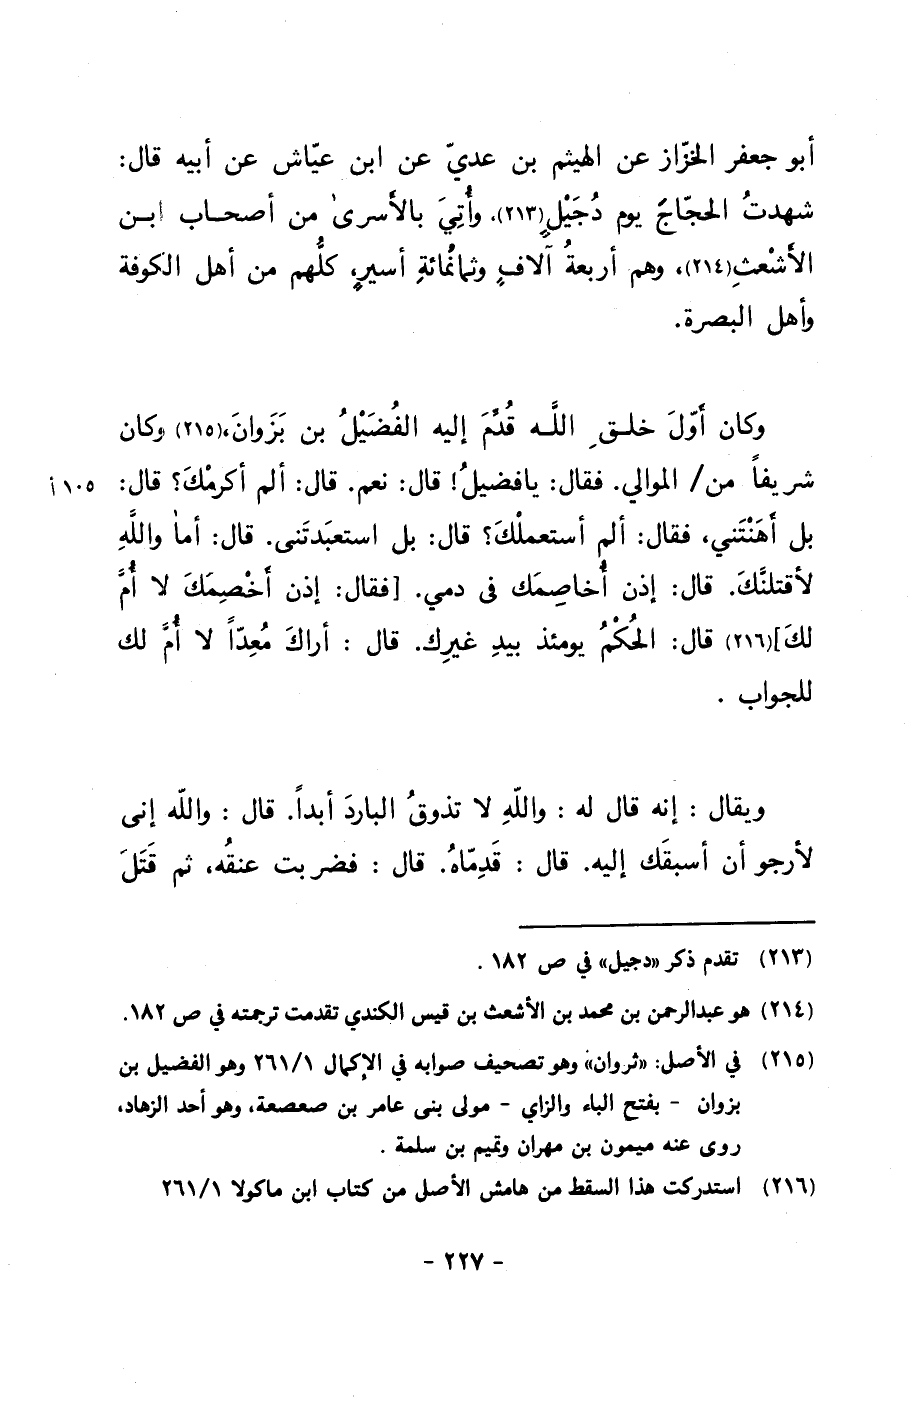 أبو جعفر الخزّاز عن الهيثم بن عديّ عن ابن عيّاش عن أبيه قال:
شهدتُ الحجّاجَ يوم دُجَيْلٍ(٢١٣)، وأُتِيَ بالأَسرىٰ من أصحاب ابن
الأَشْعثِ(٢١٤)، وهم أربعةُ آلافٍ وثمانُمائةِ أسيرٍ، كلُّهم من أهل الكوفة
وأهل البصرة.
وكان أَوّلَ خلقِ اللَّه قُدِّمَ إليه الفُضَيْلُ بن بَزَوانَ،(٢١٥) وكان
شريفاً من/ الموالي. فقال: يافضيلُ! قال: نعم. قال: ألم أكرمْكَ؟ قال: ١٠٥ أ
بل أَهَنْتَني، فقال: ألم أستعملْكَ؟ قال: بل استعبَدتَنى. قال: أماٰ واللَّهِ
لأقتلنَّكَ. قال: إذن أُخاصِمَك فى دمي. [فقال: إذن أَخْصِمَكَ لا أُمَّ
لكَ](٢١٦) قال: الحُكْمُ يومئذ بيدِ غيرِك. قال : أراكَ مُعِدّاً لا أُمَّ لك
للجواب .
ويقال : إنه قال له : واللّهِ لا تذوقُ الباردَ أبداً. قال : واللّه إنى
لأرجو أن أسبقَك إليه. قال : قَدِمّاهُ. قال : فضربت عنقُه، ثم قَتَلَ
(٢١٣) تقدم ذكر «دجيل» في ص ١٨٢ .
(٢١٤) هو عبدالرحمن بن محمد بن الأشعث بن قيس الكندي تقدمت ترجمته في ص ١٨٢.
(٢١٥) في الأصل: «ثروان» وهو تصحيف صوابه في الإكمال ٢٦١/١ وهو الفضيل بن
بزوان - بفتح الباء والزاي - مولى بنى عامر بن صعصعة، وهو أحد الزهاد،
روى عنه ميمون بن مهران وتميم بن سلمة .
(٢١٦) استدركت هذا السقط من هامش الأصل من كتاب ابن ماكولا ٢٦١/١
- ٢٢٧ -